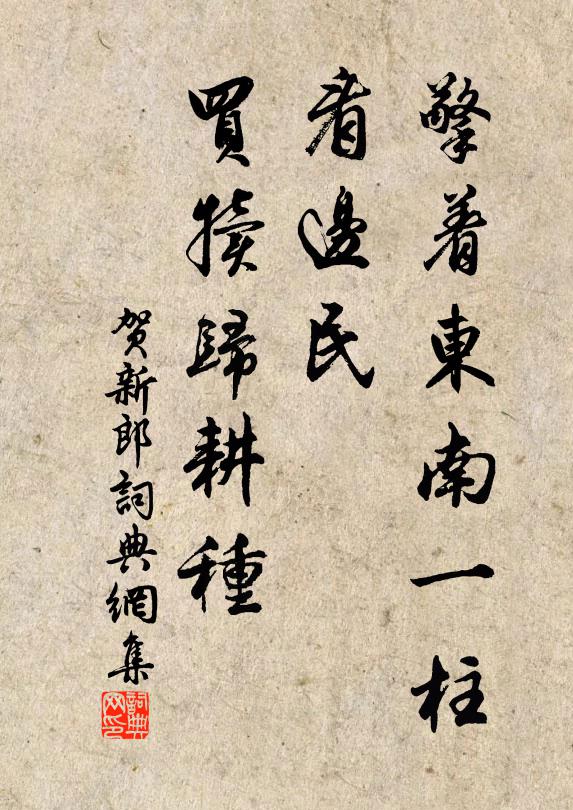 擎着東南一柱
看邊民
買犢歸耕種
賀新郎詞典網集
詞典网印